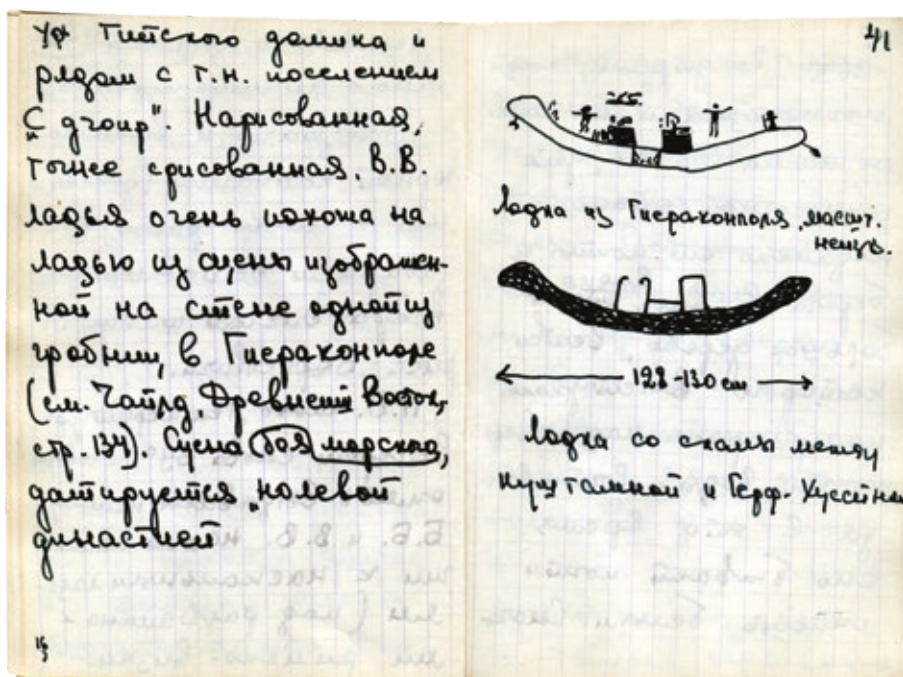 ур. Гитского домика и
рядом с т.н. поселением
"С дчоир". Нарисованная,
точнее срисованная, В.В.
ладья очень похожа на
ладью из сцены изображен-
ной на стене одной из
гробниц в Гиераконполе
(см. Чайлд, Древнейший Восток,
стр. 134). Сцена боя морского,
датируется „нолевой
династией
41
Лодка из Гиераконполя, масшт.
неизв.
128-130 см
Лодка со скалы между
Куштамной и Герф-Хуссейном